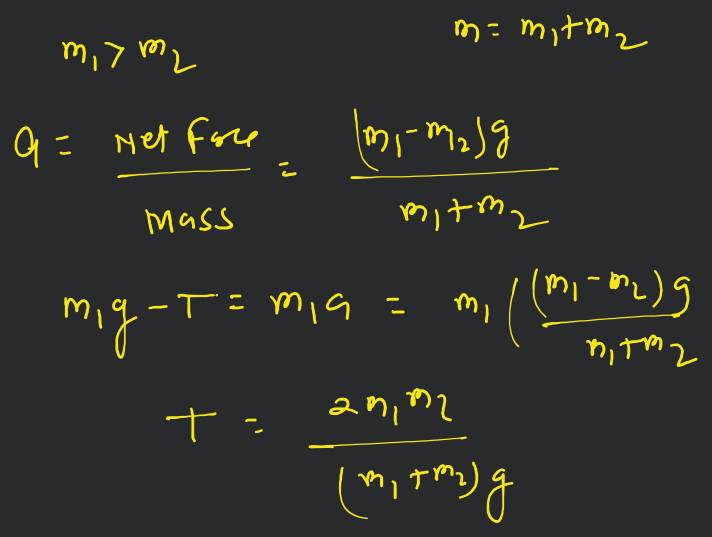 m₁ > m₂
m = m₁+m₂
a = Net Force / Mass = (m₁-m₂)g / m₁+m₂
m₁g - T = m₁a = m₁((m₁-m₂)g / m₁+m₂
T = 2m₁m₂ / (m₁+m₂)g